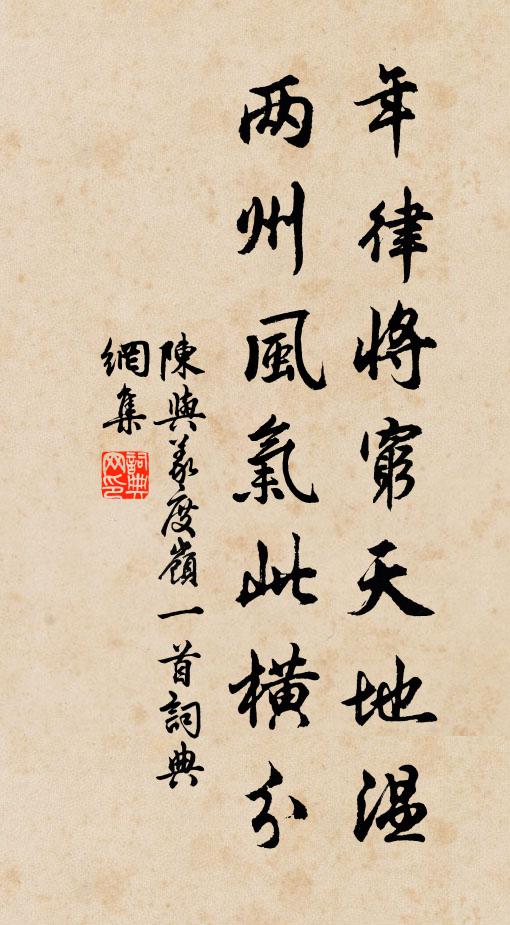 年律将窮天地温
两州風氣此橫分
陳與義度嶺一首詞典
網集
詞典网印